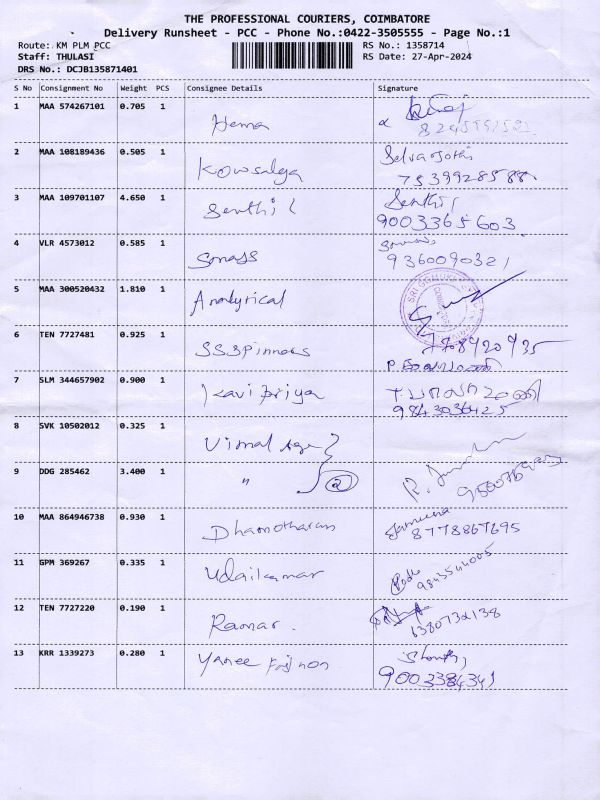 THE PROFESSIONAL COURIERS, COIMBATORE
Delivery Runsheet - PCC - Phone No.:0422-3505555 - Page No.:1
Route: KM PLM PCC RS No.: 1358714
Staff: THULASI RS Date: 27-Apr-2024
DRS No.: DCJB135871401
S No Consignment No Weight PCS Consignee Details Signature
1 MAA 574267101 0.705 1 Hema
2 MAA 108189436 0.505 1 Kowsalya Selvarjothi
7539928588
3 MAA 109701107 4.650 1 Senthil Senthil
9003365603
4 VLR 4573012 0.585 1 Sonass
9360090321
5 MAA 300520432 1.810 1 Analytical
6 TEN 7727481 0.925 1 SSSpinners
7 SLM 344657902 0.900 1 Kavi Priya
9843036425
8 SVK 10502012 0.325 1 Vimal Age
9 DDG 285462 3.400 1 " 2
10 MAA 864946738 0.930 1 Dhamotharan Jamuna
8778867695
11 GPM 369267 0.335 1 Udaikumar
9843544005
12 TEN 7727220 0.190 1 Ramar.
6380732138
13 KRR 1339273 0.280 1 Yanee
9003384341